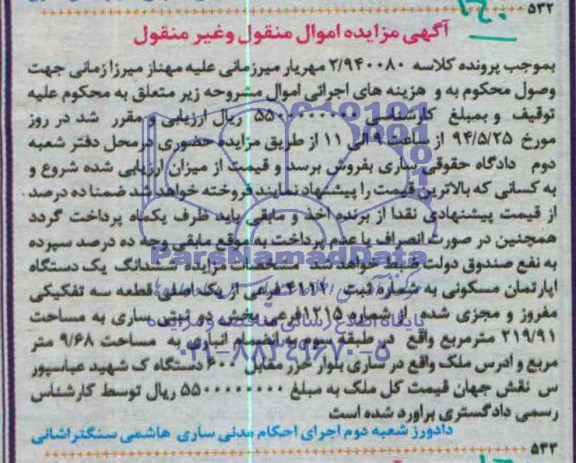 ۵۳۲
آگهی مزایده اموال منقول وغیر منقول
بموجب پرونده کلاسه ۲/۹۴۰۰۸۰ مهریار میرزمانی علیه مهناز میرزا زمانی جهت
وصول محکوم به و هزینه های اجرائی اموال مشروحه زیر متعلق به محکوم علیه
توقیف و بمبلغ کارشناسی ۵۵۰۰۰۰۰۰۰۰ ریال ارزیابی و مقرر شد در روز
مورخ ۹۴/۵/۲۵ از ساعت ۹ الی ۱۱ از طریق مزایده حضوری درمحل دفتر شعبه
دوم دادگاه حقوقی ساری بفروش برسد و قیمت از میزان ارزیابی شده شروع و
به کسانی که بالاترین قیمت را پیشنهاد نمایند فروخته خواهد شد ضمنا ده درصد
از قیمت پیشنهادی نقدا از برنده اخذ و مابقی باید ظرف یکماه پرداخت گردد
همچنین در صورت انصراف یا عدم پرداخت به موقع مابقی وجه ده درصد سپرده
به نفع صندوق دولت ضبط خواهد شد مشخصات مزایده ششدانگ یک دستگاه
اپارتمان مسکونی به شماره ثبت ۴۱۱۲ فرعی از یک اصلی قطعه سه تفکیکی
مفروز و مجزی شده از شماره ۱۲۱۵ فرعی بخش دو ثبتی ساری به مساحت
۲۱۹/۹۱ مترمربع واقع در طبقه سوم به انضمام انباری به مساحت ۹/۶۸ متر
مربع و ادرس ملک واقع در ساری بلوار خزر مقابل ۶۰۰ دستگاه ک شهید عباسپور
س نقش جهان قیمت کل ملک به مبلغ ۵۵۰۰۰۰۰۰۰۰ ریال توسط کارشناس
رسمی دادگستری براورد شده است
دادورز شعبه دوم اجرای احکام مدنی ساری هاشمی سنگتراشانی
۵۳۳
ParsNamadData
پایگاه اطلاع رسانی مناقصه و مزایده
۰۲۱-۸۸۳۴۹۶۷۰-۵